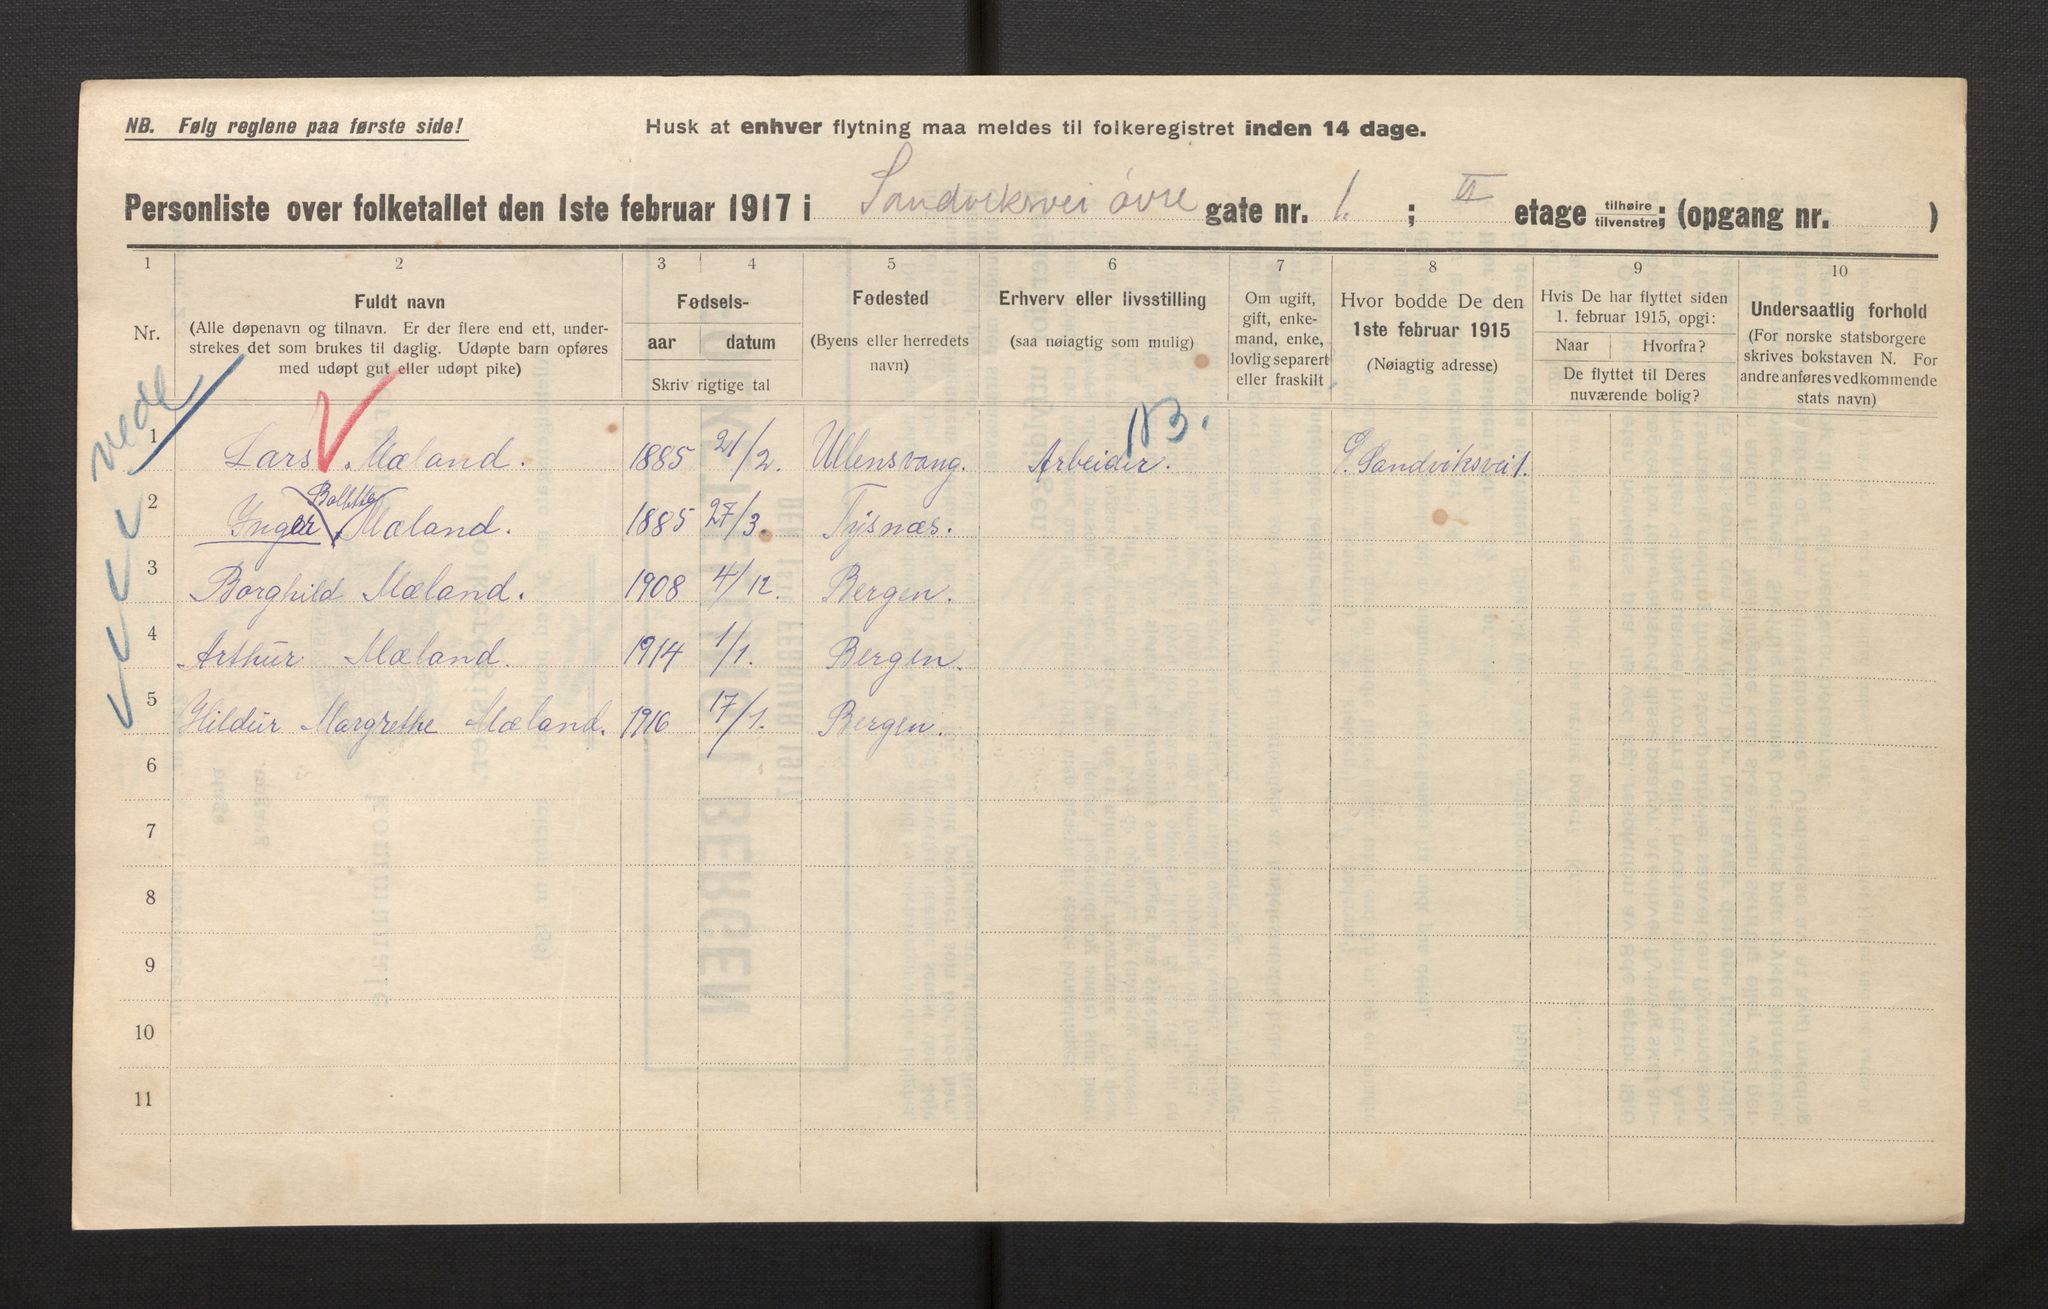 NB. Følg reglene paa første side!
Husk at enhver flytning maa meldes til folkeregistret inden 14 dage.
Personliste over folketallet den 1ste februar 1917 i Sandviksvei øvre gate nr. 1. ; II etage tilhøire tilvenstre; (opgang nr. )
1 2 3 4 5 6 7 8 9 10
Nr.
Fuldt navn
(Alle døpenavn og tilnavn. Er der flere end ett, under-
strekes det som brukes til daglig. Udøpte barn opføres
med udøpt gut eller udøpt pike)
Fødsels-
aar datum
Skriv rigtige tal
Fødested
(Byens eller herredets
navn)
Erhverv eller livsstilling
(saa nøiagtig som mulig)
Om ugift,
gift, enke-
mand, enke,
lovlig separert
eller fraskilt
Hvor bodde De den
1ste februar 1915
(Nøiagtig adresse)
Hvis De har flyttet siden
1. februar 1915, opgi:
Naar Hvorfra?
De flyttet til Deres
nuværende bolig?
Undersaatlig forhold
(For norske statsborgere
skrives bokstaven N. For
andre anføres vedkommende
stats navn)
vede
1 Lars Mæland. 1885 21/2. Ullensvang. Arbeider. Sandviksvei 1.
Bolette
2 Inger Mæland. 1885 27/3. Tysnæs.
3 Borghild Mæland. 1908 4/12. Bergen.
4 Arthur Mæland. 1914 1/1. Bergen.
5 Hildur Margrethe Mæland. 1916 17/1. Bergen.
6
7
8
9
10
11